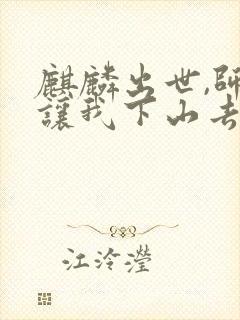 麒麟出世,師
讓我下山去
江泠瀅